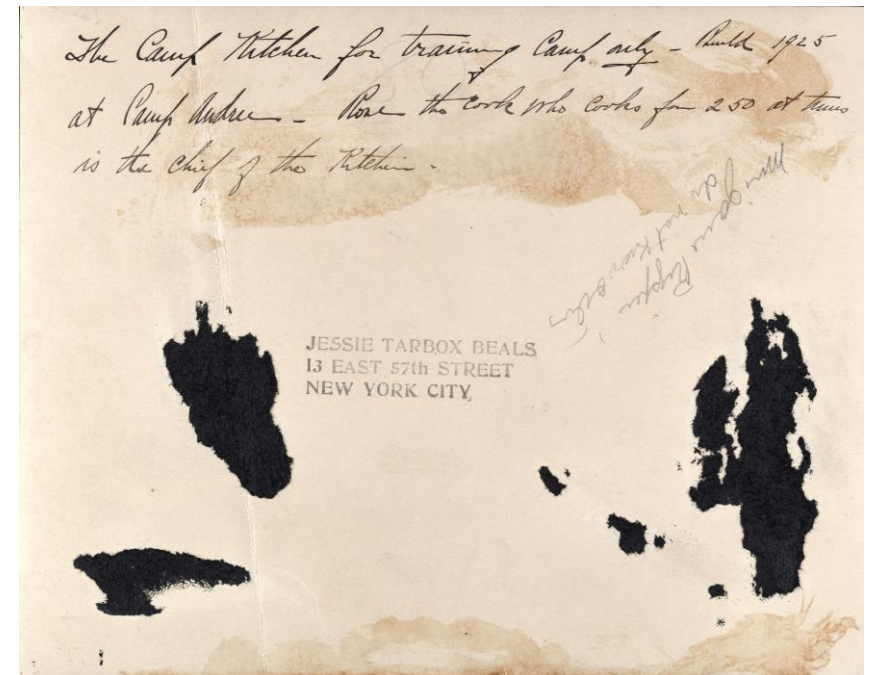 The Camp Kitchen for training Camp only - Build 1925
at Camp Andree - Rose the cook who cooks for 250 at times
is the chief of the Kitchen.
JESSIE TARBOX BEALS
13 EAST 57th STREET
NEW YORK CITY